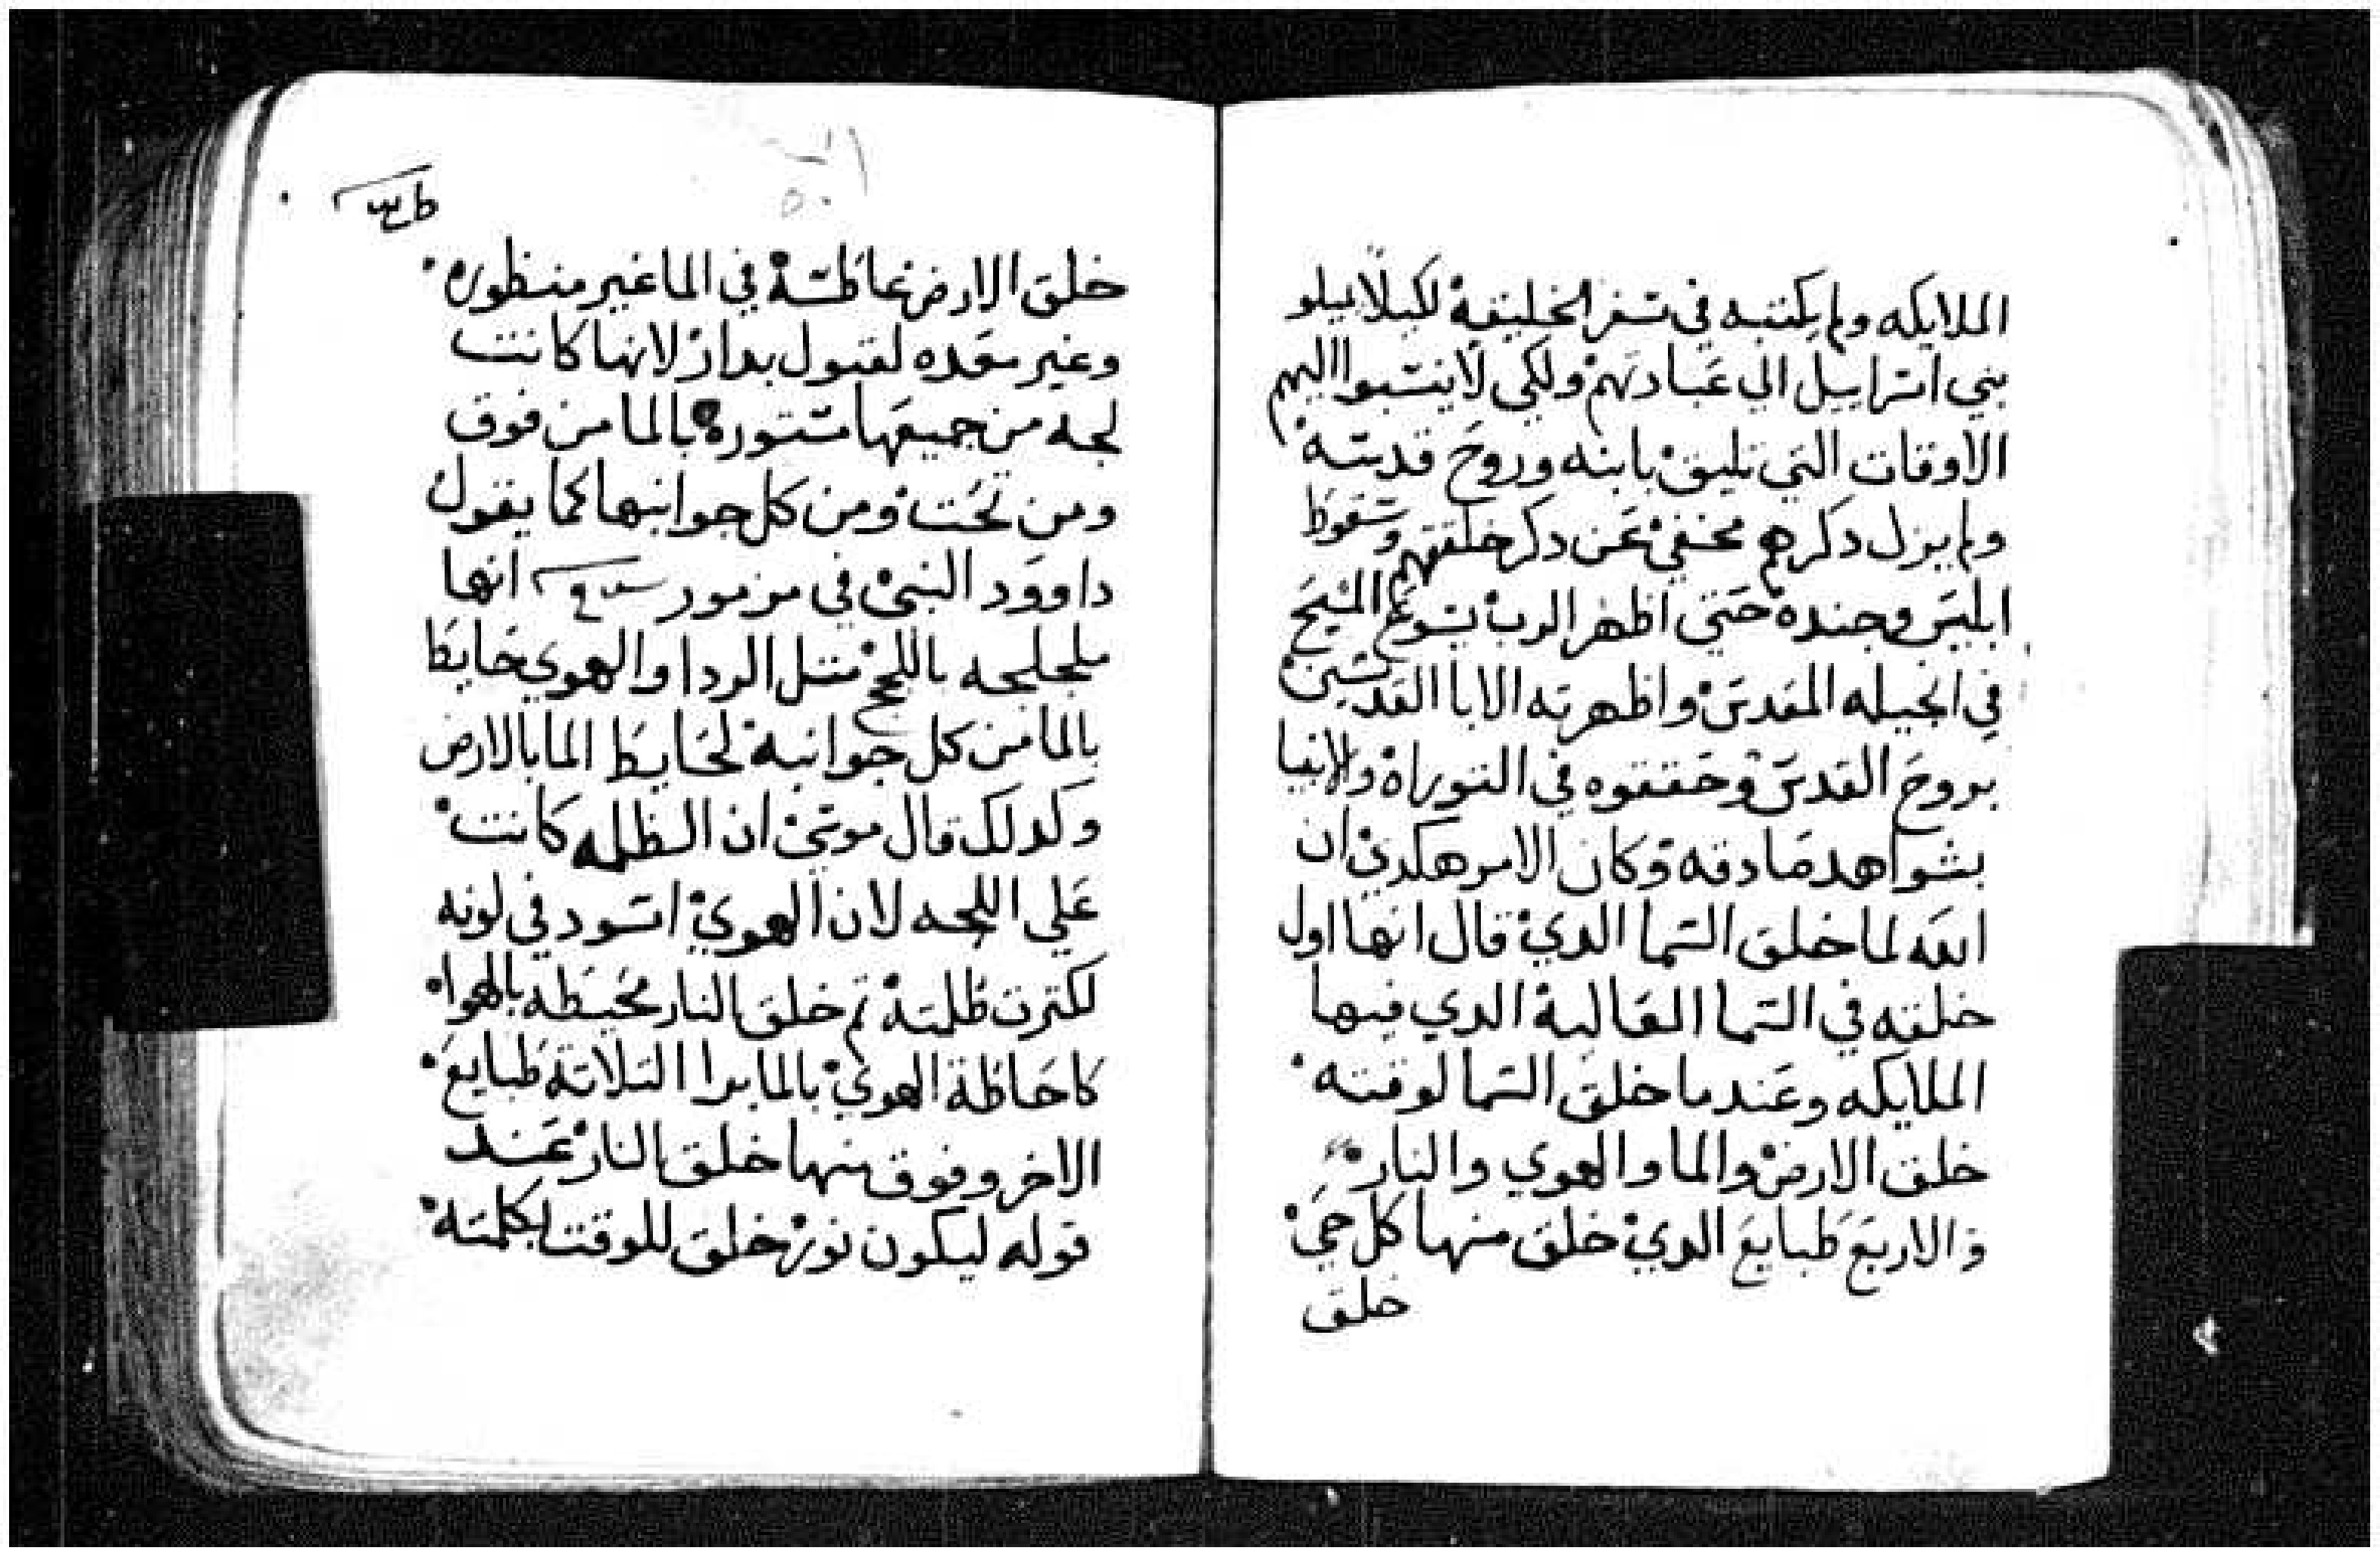 الملايكه ولم يكتبه في سفر الخليقة لكيلا يميلو
بني اسراييل الي عبادتهم ولكي لا ينسبوا اليهم
الاوقات التي تليق بابنه وروح قدسه
ولم يزل دكرهم مخفي عن دكر خلقتهم وسقوط
ابليس وجنده حتي اظهر الرب يسوع المسيح
في انجيله المقدس واظهرته الابا القديسين
بروح القدس وحققوه في التوراة والانبيا
بشواهد صادقه وكان الامر هكدي ان
الله لما خلق السما الدي قال انها اول
خلقته في السما العالية الدي فيها
الملايكه وعندما خلق السما لوقته
خلق الارض والما والهوي والنار
والاربع طبايع الدي خلق منها كل حي
خلق
خلق الارض غاطسة في الما غير منظوره
وغير معده لقبول بدار لانها كانت
لجه من جميعها مستورة بالما من فوق
ومن تحت ومن كل جوانبها كما يقول
داوود النبي في مزمور انها
ملجلجه باللجج متل الردا والهوي حايط
بالما من كل جوانبه لحايط الما بالارض
وكدلك قال موسي ان الظلمه كانت
علي اللجه لان الهوي اسود في لونه
لكترت ظلمته تم خلق النار محيطه بالهوا
كاحاطة الهوي بالما بدا التلاتة طبايع
الاخر وفوق منها خلق النار عند
قوله ليكون نور خلق للوقت بكلمته